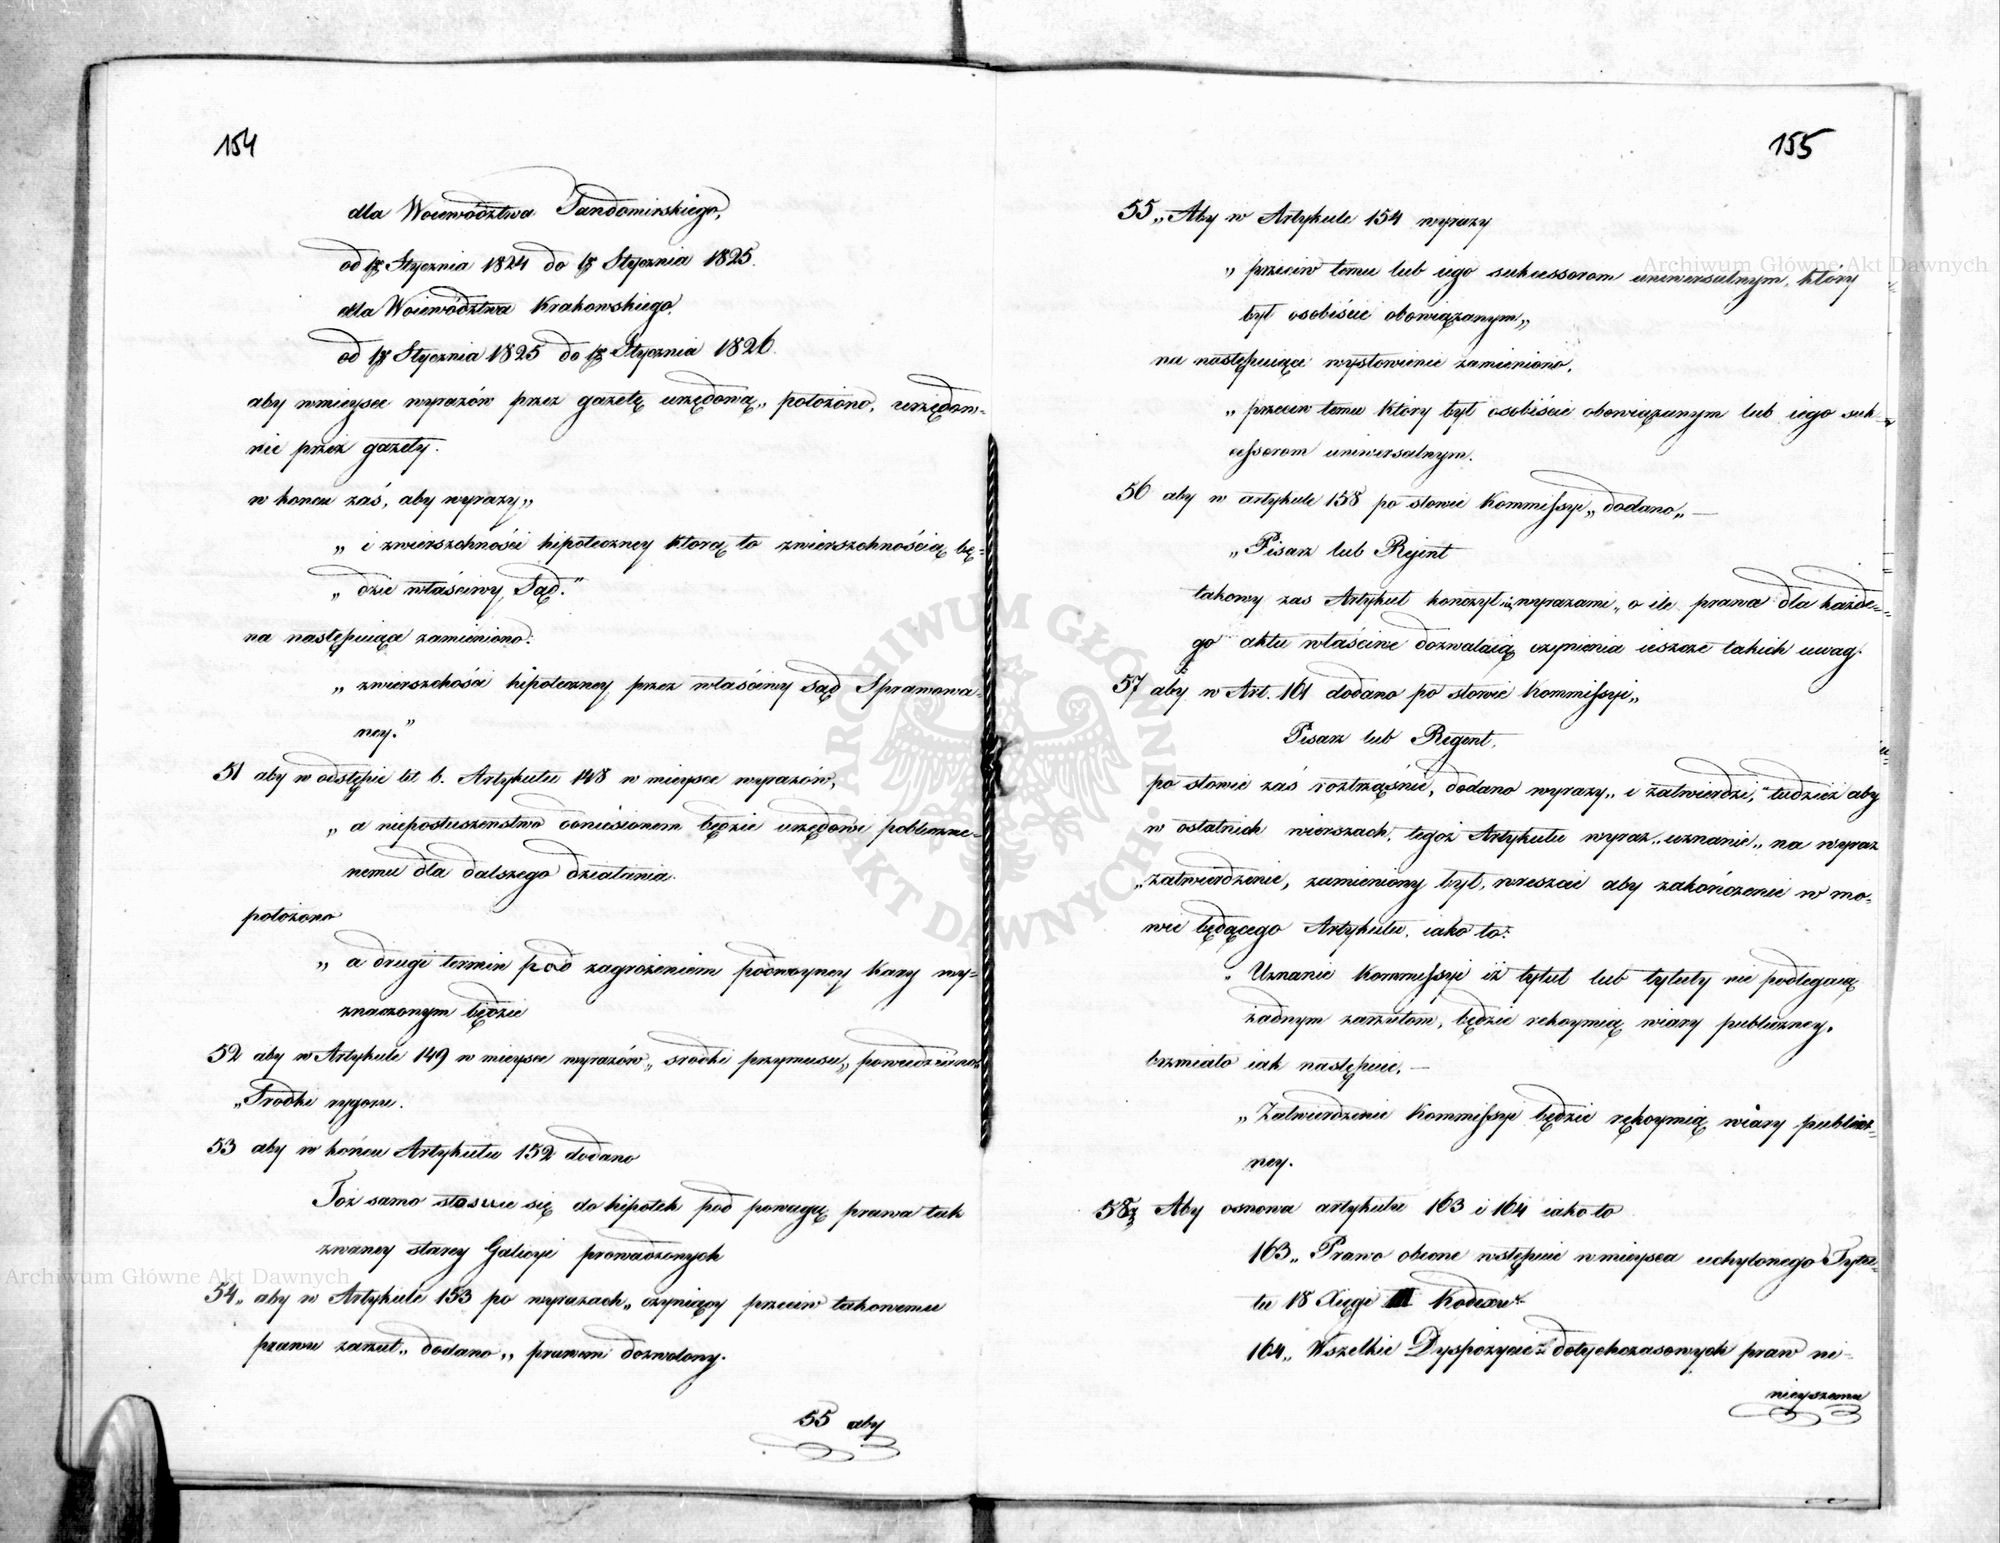 154
dla Woiewództwa Sandomirskiego,
od 1go Stycznia 1824 do 1go Stycznia 1825.
dla Woiewództwa Krakowskiego,
od 1go Stycznia 1825 do 1go Stycznia 1826.
aby wmieysce wyrazów przez gazetę urzędową„ położono, urzędow-
nie przez gazety.
w koncu zaś, aby wyrazy„
„ i zwierszchności hipoteczney którą to zwierszchnością bę-
„ dzie właściwy Sąd."
na następuiące zamieniono:
„ zwierszchości hipoteczney przez właściwy Sąd Sprawowa-
ney."
51 aby w odstępie lit b. Artykułu 148 w mieysce wyrazów,
„ a nieposłuszeństwo doniesionem będzie urzędowi publiczne-
nemu dla dalszego działania.
położono
„ a drugi termin pod zagrożeniem podwoyney kary wy-
znaczonym będzie
52 aby w Artykule 149 w mieysce wyrazów„ srodki przymusu„ powiedziano
„Srodki rygoru.
53 aby w końcu Artykułu 152 dodano
Toż samo stosuie się do hipotek pod powagą prawa tak
zwaney starey Galicyi prowadzonych
54„ aby w Artykule 153 po wyrazach„ czyniący przeciw takowemu
prawu zarzut„ dodano„ prawem dozwolony.
55 aby
155
55„ Aby w Artykule 154 wyrazy
„ przeciw temu lub iego sukcessorom uniwersalnym, który
był osobiście obowiązanym„
na następuiące wysłowienie zamieniono,
„ przeciw temu który był osobiście obowiązanym lub iego suk-
cessorom uniwersalnym.
56 aby w artykule 158 po słowie Kommissyi„ dodano„ —
„Pisarz lub Rejent
takowy zas Artykuł konczył się wyrazami„ o ile prawa dla każde-
go aktu właściwe dozwalaią czynienia ieszcze takich uwag.
57 aby w Art. 161 dodano po słowie Kommissyi„
Pisarz lub Regent,
po słowie zaś roztrząśnie, dodano wyrazy„ i zatwierdzi," tudzież aby
w ostatnich wierszach, tegoż Artykułu wyraz„ uznanie„ na wyraz
„zatwierdzenie, zamieniony był, wreszcie aby zakończenie w mo-
wie będącego Artykułu, iako to:
„ Uznanie Kommissyi iż tytuł lub tytuły nie podlegaią
żadnym zarzutom, będzie rękoymią wiary publiczney„
brzmiało iak następuie, —
„ Zatwierdzenie Kommissyi będzie rękoymią wiary publicz-
ney.
58 Aby osnowa artykułu 163 i 164 iako to
163„ Prawo obecne wstępuie w mieysca uchylonego Tytu-
łu 18 Xięgi III Kodexu
164„ Wszelkie Dyspozycie dotychczasowych praw ni-
nieyszemu
Archiwum Główne Akt Dawnych
Archiwum Główne Akt Dawnych
ARCHIWUM GŁÓWNE AKT DAWNYCH